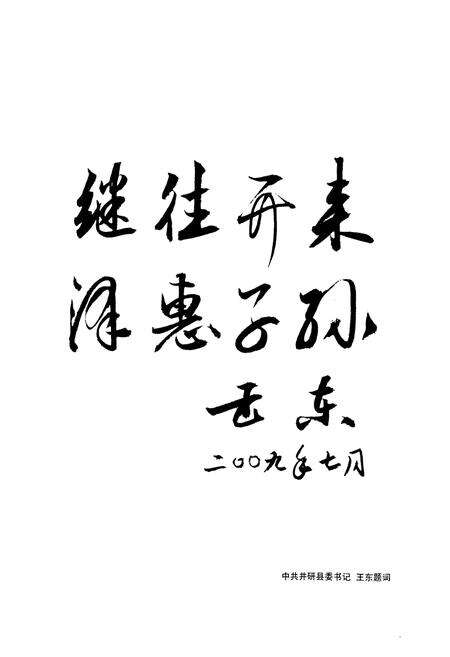 继往开来
泽惠子孙
王东
二〇〇九年七月
中共井研县委书记 王东题词